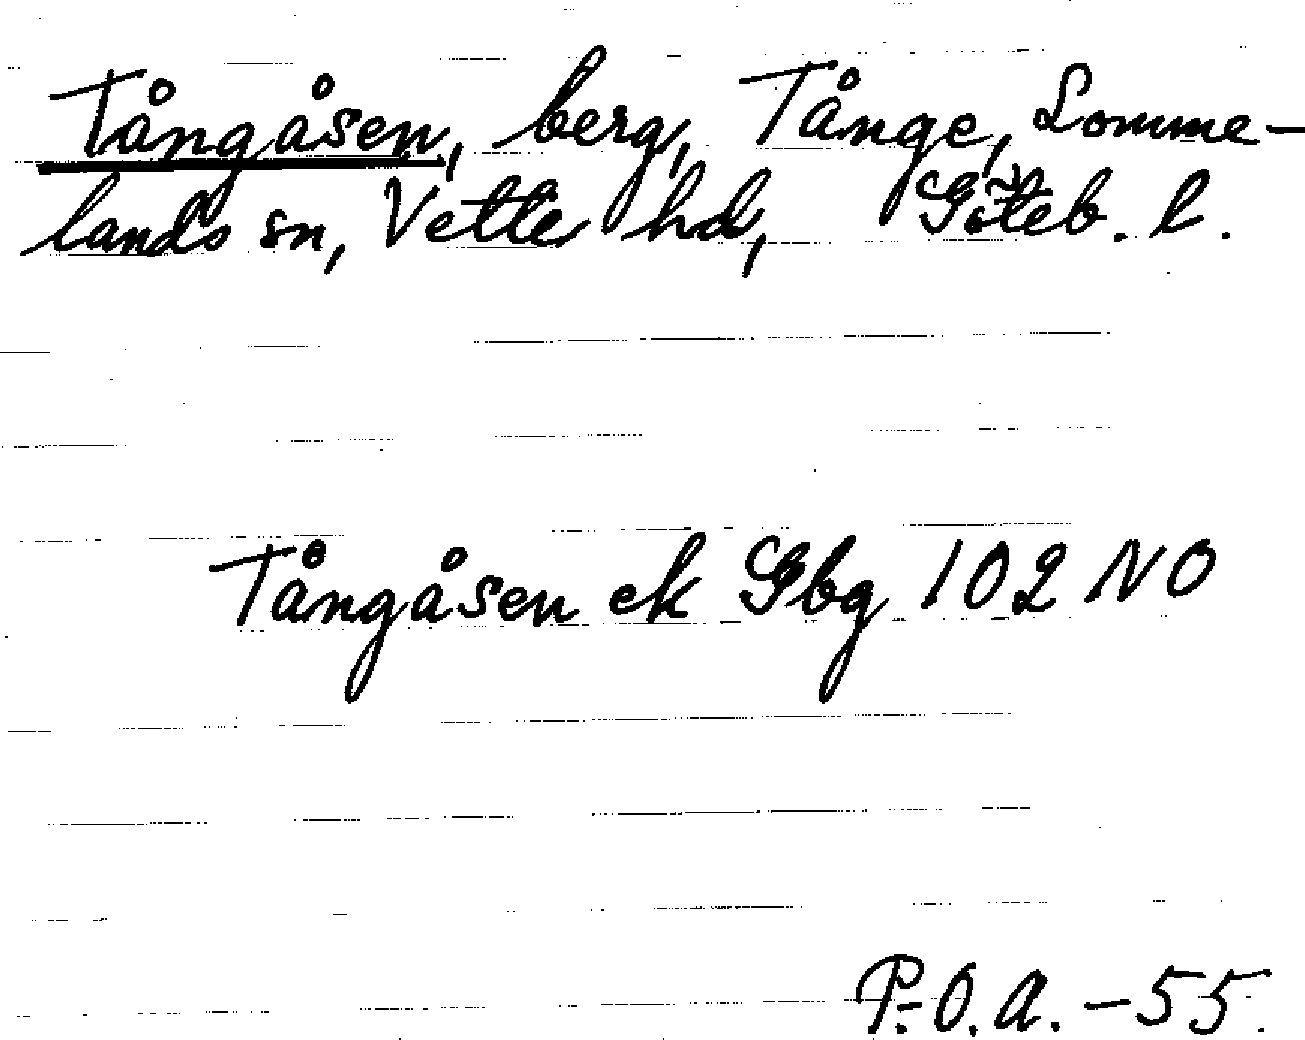 Tångåsen, berg, Tånge, Lomme-
lands sn, Vette hd, Göteb. l.
Tångåsen ek Gbg 102 NO
P.-O. A. -55.